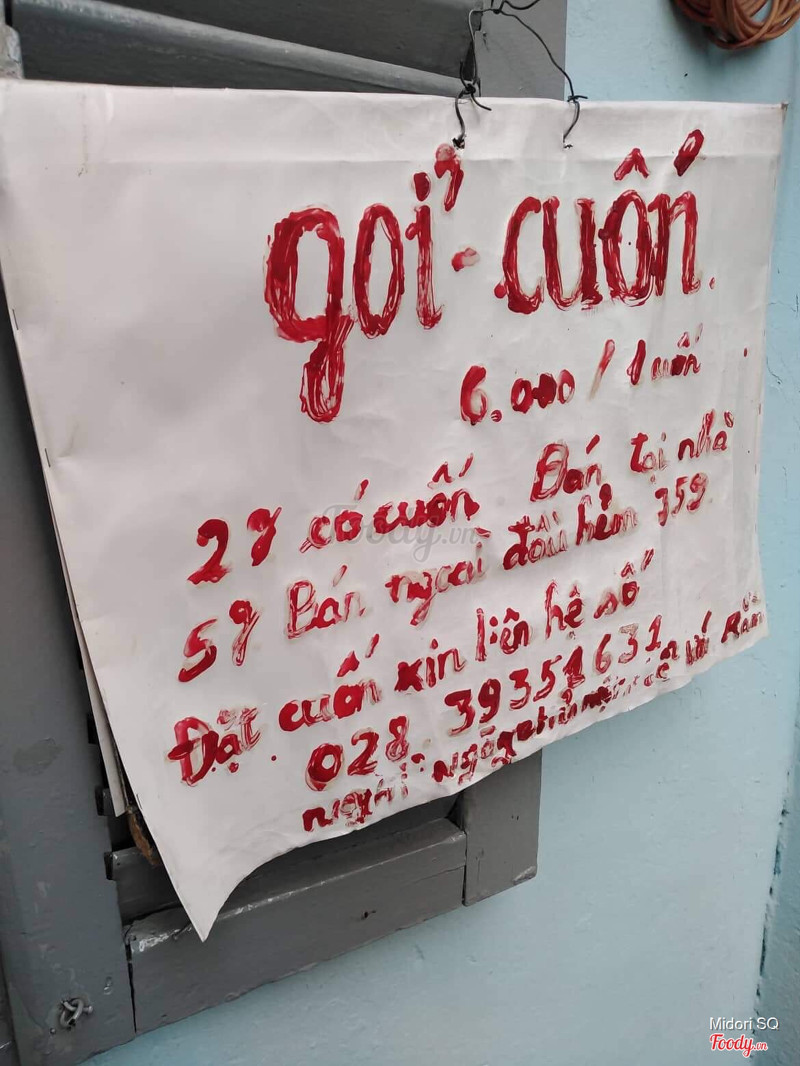 gỏi cuốn.
6.000 / 1 cuốn
2g có cuốn Bán tại nhà
5g Bán ngoài đầu hẻm 359.
Đặt cuốn xin liên hệ số
028. 39351631
nghỉ ngày
Foody.vn
Midori SQ
Foody.vn